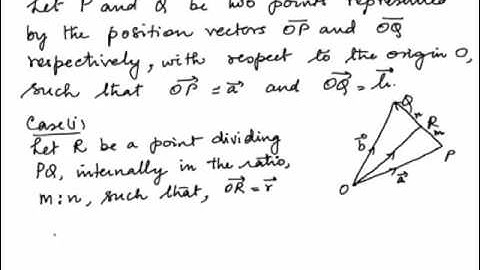 Let P and Q be two points represented
by the position vectors OP and OQ
respectively, with respect to the origin O,
such that OP = a and OQ = b.
Case(i)
Let R be a point dividing
PQ, internally in the ratio,
m:n, such that, OR = r
Q
n
R
m
P
b
a
O